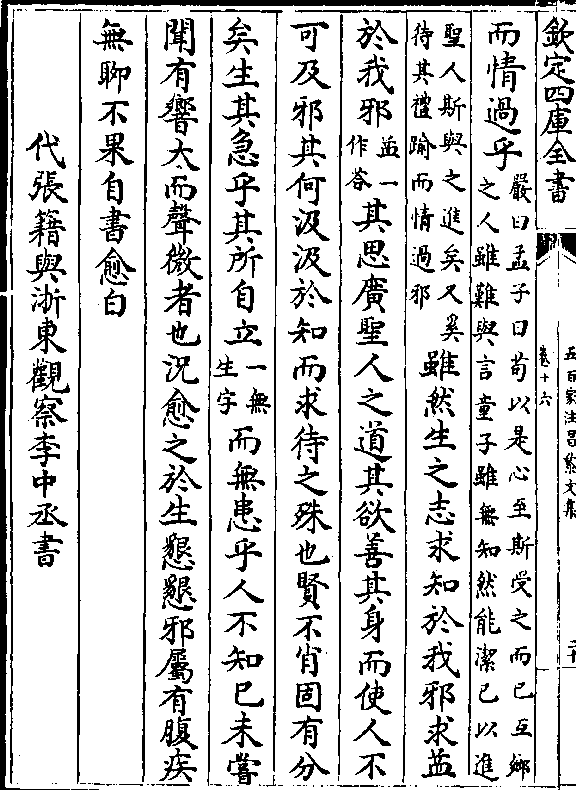 欽定四庫全書
五百家注昌黎文集
卷十六
二十
而情過乎嚴曰孟子曰苟以是心至斯受之而已互鄉
之人雖難與言童子雖無知然能潔已以進
聖人斯與之進矣又奚
待其禮踰而情過邪雖然生之志求知於我邪求益
於我邪益一
作荅其思廣聖人之道其欲善其身而使人不
可及邪其何汲汲於知而求待之殊也賢不肖固有分
矣生其急乎其所自立一無
生字而無患乎人不知已未嘗
聞有響大而聲微者也況愈之於生懇懇邪屬有腹疾
無聊不果自書愈白
代張籍與浙東觀察李中丞書